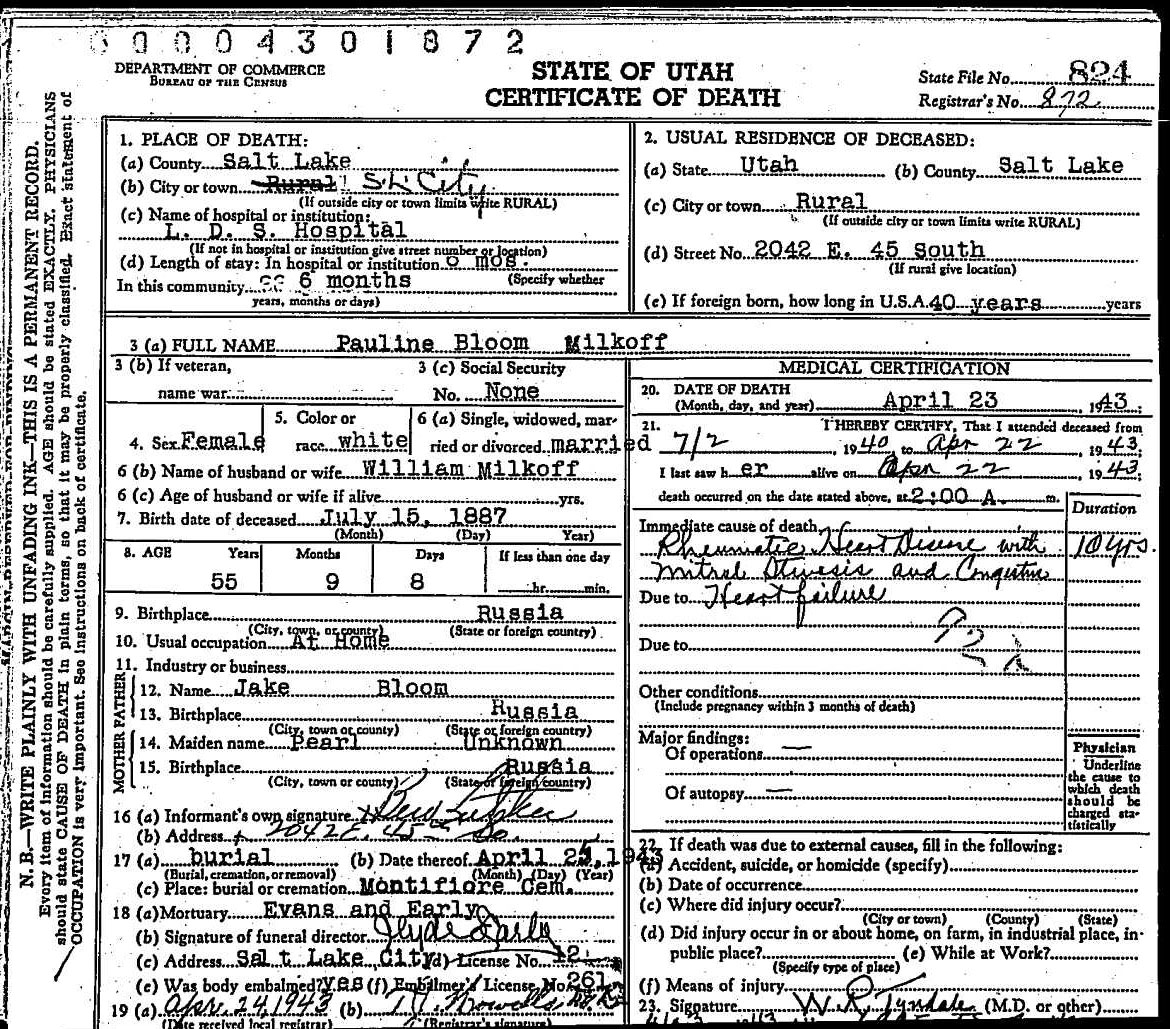 0 0 0 0 4 3 0 1 8 7 2
DEPARTMENT OF COMMERCE
BUREAU OF THE CENSUS
STATE OF UTAH
CERTIFICATE OF DEATH
State File No. 824
Registrar's No. 872
N. B.—WRITE PLAINLY WITH UNFADING INK—THIS IS A PERMANENT RECORD.
Every item of information should be carefully supplied. AGE should be stated EXACTLY. PHYSICIANS
should state CAUSE OF DEATH in plain terms, so that it may be properly classified. Exact statement of
OCCUPATION is very important. See instructions on back of certificate.
1. PLACE OF DEATH:
(a) County Salt Lake
(b) City or town Rural S L City
(If outside city or town limits write RURAL)
(c) Name of hospital or institution:
L. D. S. Hospital
(If not in hospital or institution give street number or location)
(d) Length of stay: In hospital or institution mos.
In this community 6 months (Specify whether
years, months or days)
2. USUAL RESIDENCE OF DECEASED:
(a) State Utah (b) County Salt Lake
(c) City or town Rural
(If outside city or town limits write RURAL)
(d) Street No. 2042 E. 45 South
(If rural give location)
(e) If foreign born, how long in U.S.A. 40 years years
3 (a) FULL NAME Pauline Bloom Milkoff
3 (b) If veteran,
name war
3 (c) Social Security
No. None
4. Sex Female
5. Color or
race white
6 (a) Single, widowed, mar-
ried or divorced married
6 (b) Name of husband or wife William Milkoff
6 (c) Age of husband or wife if alive yrs.
7. Birth date of deceased July 15, 1887
(Month) (Day) (Year)
8. AGE Years Months Days If less than one day
55 9 8 hr. min.
9. Birthplace Russia
(City, town, or county) (State or foreign country)
10. Usual occupation At Home
11. Industry or business
FATHER
12. Name Jake Bloom
13. Birthplace Russia
(City, town or county) (State or foreign country)
MOTHER
14. Maiden name Pearl Unknown
15. Birthplace Russia
(City, town or county) (State or foreign country)
16 (a) Informant's own signature
(b) Address 2042 E. 45th So.
17 (a) burial (b) Date thereof April 25, 1943
(Burial, cremation, or removal) (Month) (Day) (Year)
(c) Place: burial or cremation Montifiore Cem.
18 (a) Mortuary Evans and Early
(b) Signature of funeral director Clyde Early
(c) Address Salt Lake City (d) License No. 42
(e) Was body embalmed? yes (f) Embalmer's License No. 261
19 (a) Apr. 24, 1943 (b)
(Date received local registrar) (Registrar's signature)
MEDICAL CERTIFICATION
20. DATE OF DEATH
(Month, day, and year) April 23, 1943.
21. I HEREBY CERTIFY, That I attended deceased from
7/2, 1940 to Apr 22, 1943;
I last saw her alive on Apr 22 1943;
death occurred on the date stated above, at 2:00 A. m.
Duration
Immediate cause of death
Rheumatic Heart Disease with 10 yrs.
Mitral Stenosis and Congestive
Due to Heart failure
Due to
Other conditions
(Include pregnancy within 3 months of death)
Major findings:
Of operations —
Of autopsy —
Physician
Underline
the cause to
which death
should be
charged sta-
tistically
22. If death was due to external causes, fill in the following:
(a) Accident, suicide, or homicide (specify)
(b) Date of occurrence
(c) Where did injury occur?
(City or town) (County) (State)
(d) Did injury occur in or about home, on farm, in industrial place, in
public place? (e) While at Work?
(Specify type of place)
(f) Means of injury
23. Signature W. R. Tyndale (M.D. or other)